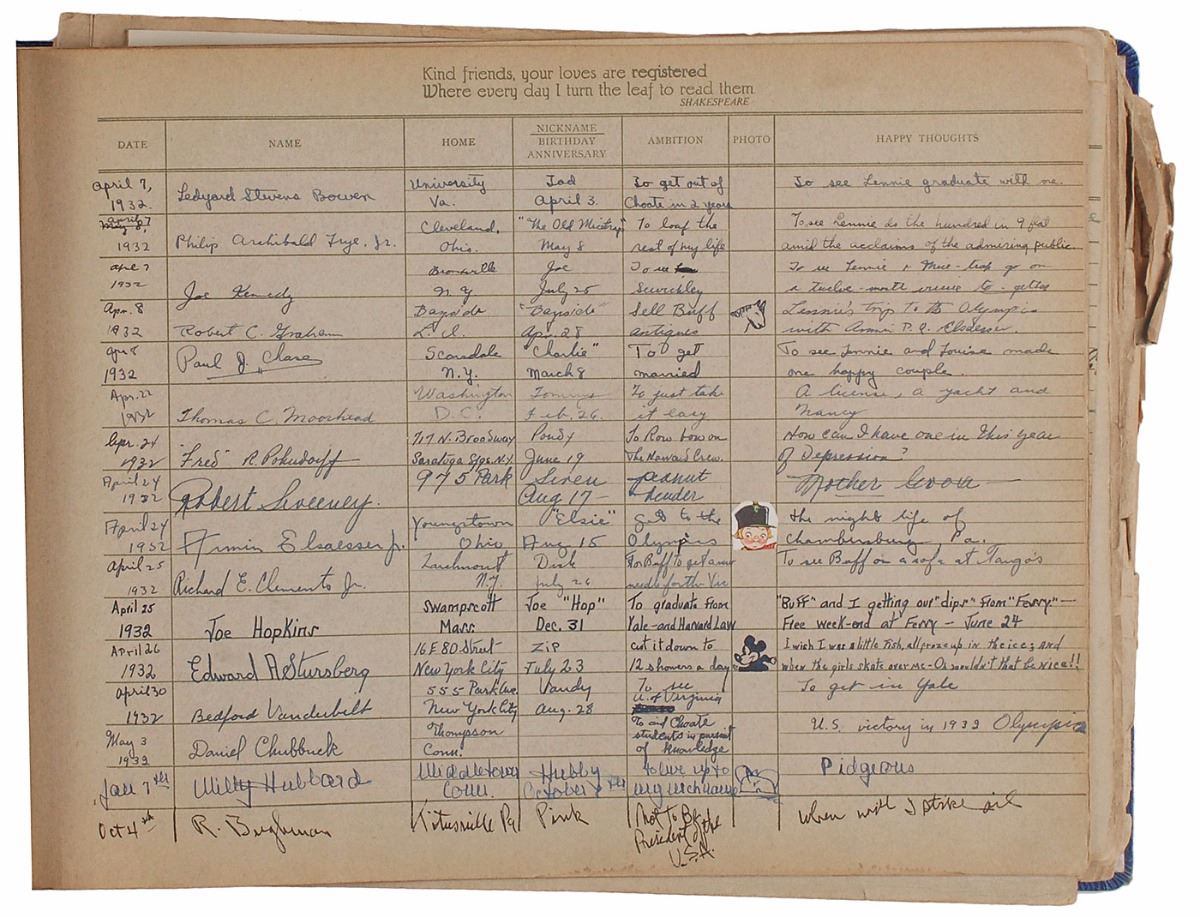 Kind friends, your loves are registered
Where every day I turn the leaf to read them
SHAKESPEARE
DATE NAME HOME NICKNAME BIRTHDAY ANNIVERSARY AMBITION PHOTO HAPPY THOUGHTS
April 7, University Tad To get out of To see Lennie graduate with me.
1932. Ledyard Stevens Bowen Va. April 3. Choate in 2 years
April 7 May 8, Cleveland, "The Old To loaf the To see Lennie do the hundred in 9 flat
1932 Philip Archibald Frye, Jr. Ohio. May 8 rest of my life amid the acclaims of the admiring public
Apr 7 Bronxville Joe To see To see Lennie + go on
1932 Joe Kennedy N.Y July 25 Sewickley a twelve-month cruise to-gether
Apr. 8 Bayside "Bayside" Sell Buff Lennie's trip to the Olympics
1932 Robert C. Graham L.I. Apr. 28 antiques with Armin P. Q. Elsaesser.
Apr 8 Paul J. Chase Scarsdale "Charlie" To get To see Lennie and Louise made
1932 N.Y. March 8 married one happy couple.
Apr. 22 Washington Tommy To just take A license, a yacht and
1932 Thomas C. Moorhead D.C. Feb. 26. it easy Nancy
Apr. 24 717 N. Broadway To Row bow on How can I have one in this year
1932 "Fred" R. Saratoga Spgs. N.Y. June 19 The Harvard Crew. of Depression?
April 24 975 Park Siren peanut Mother
1932 Robert Sweeney. Aug 17
April 24 Youngstown "Elsie" get to the the night life of
1932 Armin Elsaesser Jr. Ohio Aug 15 Olympics Chambersburg Pa.
April 25 Larchmont Dick For Buff to get a new To see Buff on a sofa at Tango's
1932 Richard E. Clements Jr. N.Y. July 26 needle for the Vic
April 25 Swampscott Joe "Hop" To graduate from "Buff" and I getting our "dips" from "Ferry"—
1932 Joe Hopkins Mass. Dec. 31 Yale and Harvard Law Free week-end at Ferry — June 24
April 26 16 E 80 Street ZIP cut it down to I wish I was a little fish, all froze up in the ice; and
1932 Edward A Stursberg New York City July 23 12 showers a day when the girls skate over me—O! wouldn't that be nice!!
April 30 555 Park Ave. Vandy To see To get in Yale
1932 Bedford Vanderbilt New York City Aug. 28 U. of Virginia
May 3 Thompson To aid Choate students in pursuit U.S. victory in 1932 Olympics
1932 Daniel Chubbuck Conn. of knowledge
Jan 7th Hubbard Middletown Hubby to live up to Pidgeons
Conn. October my nickname
Oct 4th R. Pa Pink Not to Be When will I strike oil
President of the
U.S.A.